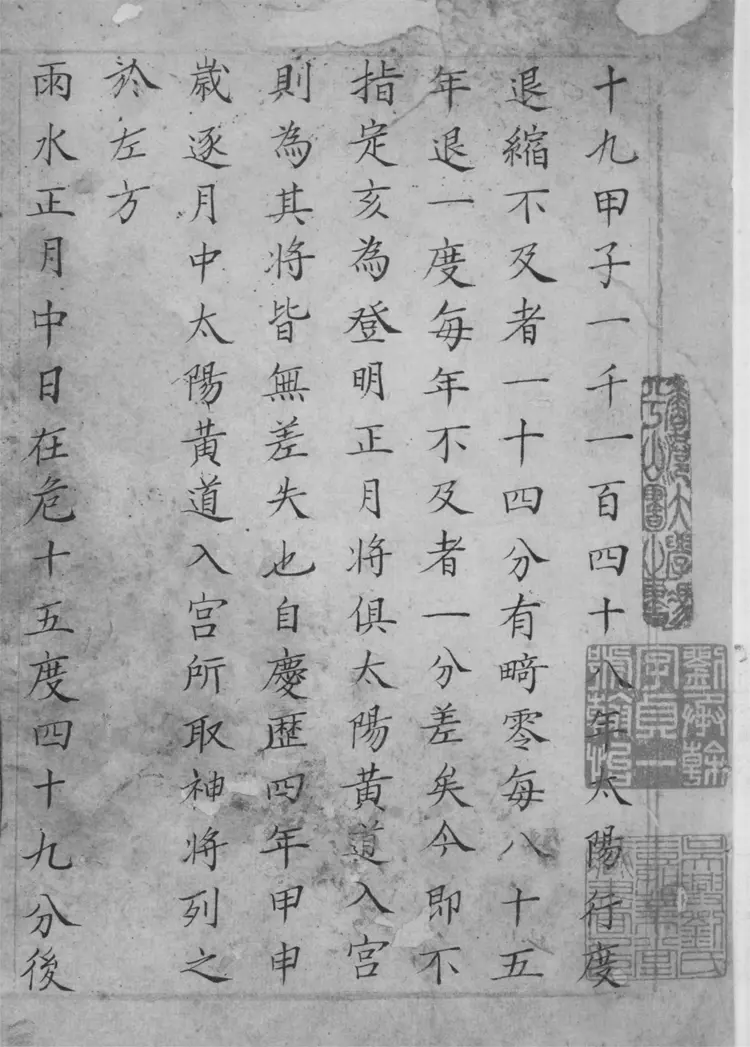 十九甲子一千一百四十八年太陽行度
退縮不及者一十四分有畸零每八十五
年退一度每年不及者一分差矣今即不
指定亥為登明正月將俱太陽黃道入宮
則為其將皆無差失也自慶歷四年甲申
歲逐月中太陽黃道入宮所取神將列之
於左方
雨水正月中日在危十五度四十九分後
劉承榦
字貞一
號翰怡